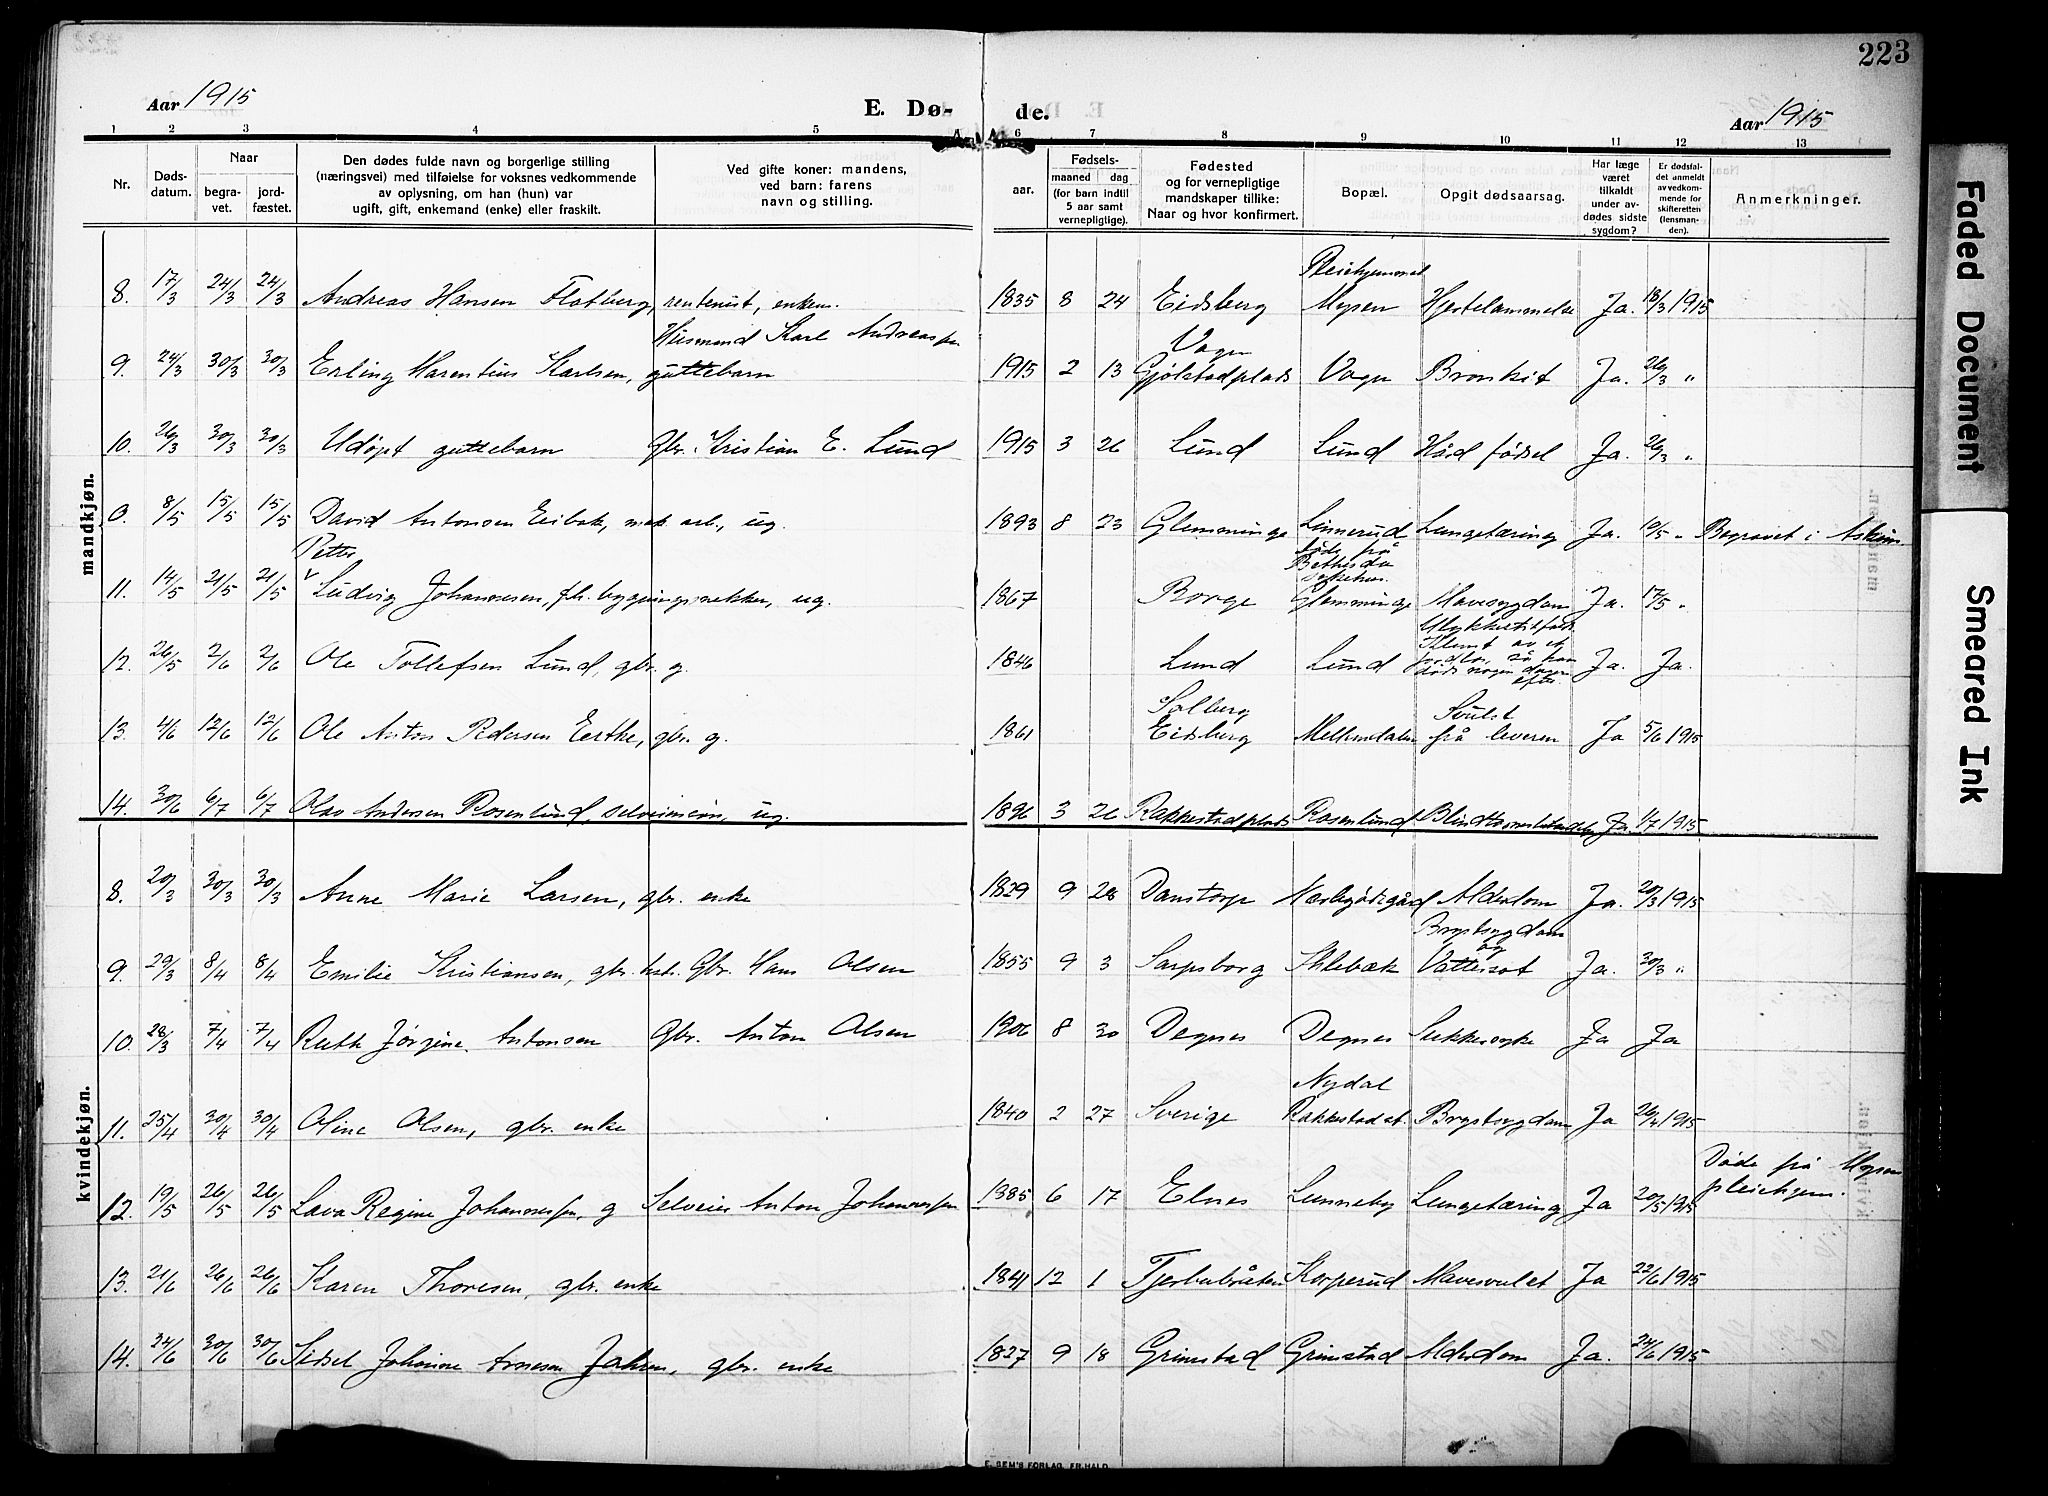 223
Aar 1915
E. Dø-
de.
Aar 1915
1 2 3 4 5 6 7 8 9 10 11 12 13
Nr.
Døds-
datum.
Naar
begra-
vet.
jord-
fæstet.
Den dødes fulde navn og borgerlige stilling
(næringsvei) med tilføielse for voksnes vedkommende
av oplysning, om han (hun) var
ugift, gift, enkemand (enke) eller fraskilt.
Ved gifte koner: mandens,
ved barn: farens
navn og stilling.
aar.
Fødsels-
maaned dag
(for barn indtil
5 aar samt
vernepligtige).
Fødested
og for vernepligtige
mandskaper tillike:
Naar og hvor konfirmert.
Bopæl.
Opgit dødsaarsag.
Har læge
været
tilkaldt
under av-
dødes sidste
sygdom?
Er dødsfal-
det anmeldt
av vedkom-
mende for
skifteretten
(lensman-
den).
Anmerkninger.
mandkjøn.
8. 17/3 24/3 24/3 Andreas Hansen Flatberg, rentenist, enkem. 1835 8 24 Eidsberg Pleiehjemmet Mysen Hjertelammelse Ja. 18/3 1915
9. 24/3 30/3 30/3 Erling Marentius Karlsen, guttebarn Husmand Karl Andreassen 1915 2 13 Vagn Gjølstadplads Vagn Bronkit Ja. 26/3 "
10. 26/3 30/3 30/3 Udøpt guttebarn Gbr. Kristian E. Lund 1915 3 26 Lund Lund Hård fødsel Ja. 26/3 "
0. 8/5 15/5 15/5 David Antonsen Eibak, mek. arb., ug. 1893 8 23 Glemminge Linnerud Lungetæring Ja. 10/5 " Begravet i Askim.
11. 14/5 21/5 21/5 Petter Ludvig Johannesen, fh. bygningssnekker, ug. 1867 Borge døde på Bethesda sykehus. Glemminge Mavesygdom Ja. 17/5 "
12. 26/5 2/6 2/6 Ole Tollefsen Lund, gbr. g. 1846 Lund Lund Ulykkestilfælde av et så han døde nogen dager efter. Ja. Ja.
13. 4/6 12/6 12/6 Ole Anton Pedersen Eertke, gbr. g. 1861 Solberg Eidsberg Melkendalen Svulst på leveren Ja 5/6 1915
14. 30/6 6/7 6/7 Olav Andersen Rosenlund, selveiersøn, ug. 1896 3 26 Rakkestadplads Rosenlund Ja. 1/7 1915
kvindekjøn.
8. 20/3 30/3 30/3 Anne Marie Larsen, gbr. enke 1829 9 28 Danstorp Alderdom Ja. 20/3 1915
9. 29/3 8/4 8/4 Emilie Kristiansen, gbr. kstr. Gbr. Hans Olsen 1855 9 3 Sarpsborg Brystsygdom og Vattersot Ja. 30/3 "
10. 28/3 7/4 7/4 Ruth Jørgine Antonsen Gbr. Anton Olsen 1906 8 30 Degnes Degnes Sukkersyke Ja Ja
11. 25/4 30/4 30/4 Oline Olsen, gbr. enke 1840 2 27 Sverige Nydal Rakkestad st. Brystsygdom Ja 26/4 1915
12. 19/5 26/5 26/5 Lava Regine Johannessen, g Selveier Anton Johannessen 1885 6 17 Elnes Lunneby Lungetæring Ja 20/5 1915 Døde på Mysen pleiehjem.
13. 21/6 26/6 26/6 Karen Thoresen, gbr. enke 1841 12 1 Tjerbubråten Korperud Mavesvulst Ja 22/6 1915
14. 24/6 30/6 30/6 Sidsel Johanne Arnesen Jahren, gbr. enke 1827 9 18 Grimstad Grimstad Alderdom Ja. 24/6 1915
E. SEM'S FORLAG, FR.HALD
Faded Document
Smeared Ink